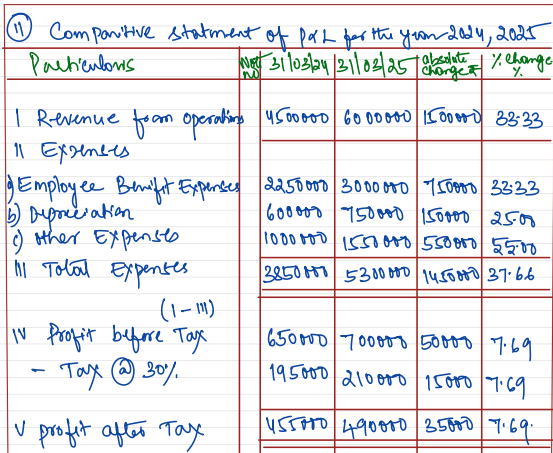 (11) Comparitive statment of P&L for the year 2024, 2025
Particulars Not no 31/03/24 31/03/25 absolute change ₹ % Change %
I Revenue from operations 4500000 6000000 1500000 33.33
II Expenses
a) Employee Benifit Expenses 2250000 3000000 750000 33.33
b) Depreciation 600000 750000 150000 25.00
c) other Expenses 1000000 1550000 550000 55.00
III Total Expenses 3850000 5300000 1450000 37.66
(I - III)
IV Profit before Tax 650000 700000 50000 7.69
- Tax @ 30% 195000 210000 15000 7.69
V profit after Tax 455000 490000 35000 7.69.